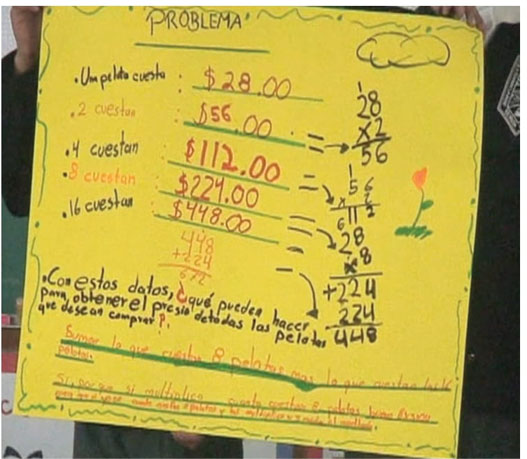 PROBLEMA
• Um pelota cuesta : $28.00
• 2 cuestan : $56.00
• 4 cuestan : $112.00
• 8 cuestan : $224.00
• 16 cuestan : $448.00
448
+224
672
28
x2
56
56
x 2
112
28
x8
+224
224
448
• Con estos datos, ¿qué pueden hacer
para obtener el presio de todas las pelotas
que desean comprar?.
Sumar lo que cuestan 8 pelotas mas lo que cuestan
pelotas.
Si, porque si multiplico cuanto cuestan 8 pelotas